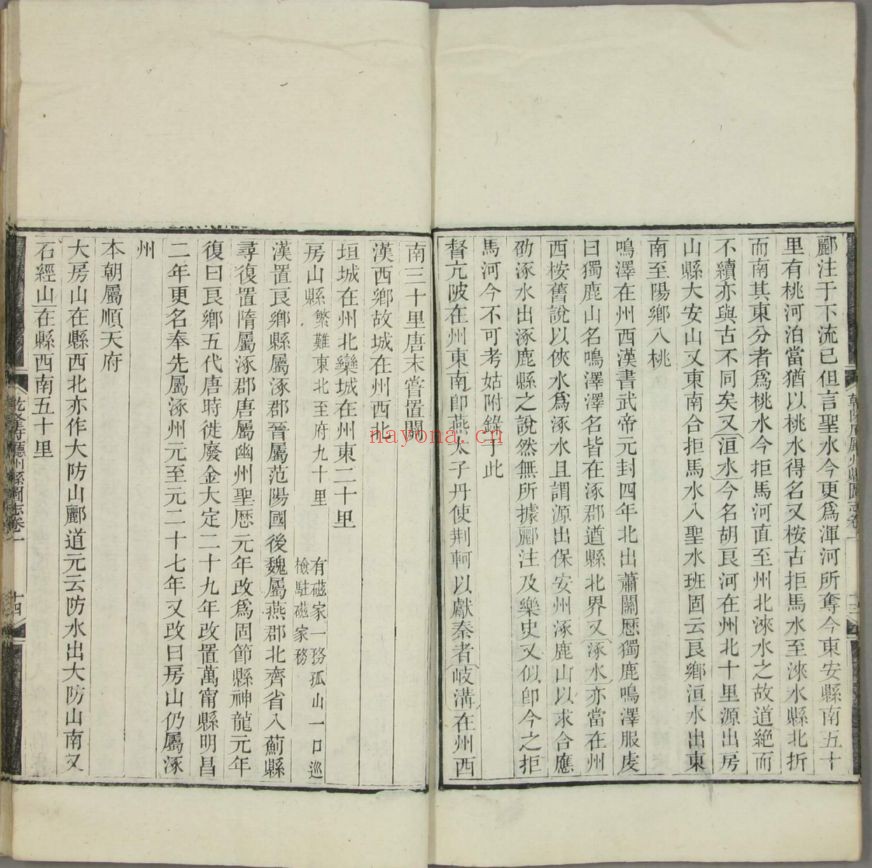 酈注于下流已但言聖水今更爲渾河所奪今東安縣南五十
里有桃河泊當猶以桃水得名又桉古拒馬水至淶水縣北折
而南其東分者爲桃水今拒馬河直至州北淶水之故道絶而
不續亦與古不同矣又洹水今名胡良河在州北十里源出房
山縣大安山又東南合拒馬水入聖水班固云良鄉洹水出東
南至陽鄉入桃
鳴澤在州西漢書武帝元封四年北出蕭關歷獨鹿鳴澤服虔
曰獨鹿山名鳴澤澤名皆在涿郡遒縣北界又涿水亦當在州
西桉舊說以俠水爲涿水且謂源出保安州涿鹿山以求合應
劭涿水出涿鹿縣之說然無所據酈注及樂史又似卽今之拒
馬河今不可考姑附錄于此
督亢陂在州東南卽燕太子丹使荆軻以獻秦者岐溝在州西
南三十里唐末嘗置關
漢西鄉故城在州西北
垣城在州北欒城在州東二十里
房山縣繁難東北至府九十里
有磁家一務孤山一口巡
檢駐磁家務
漢置良鄉縣屬涿郡晉屬范陽國後魏屬燕郡北齊省入薊縣
尋復置隋屬涿郡唐屬幽州聖歷元年改爲固節縣神龍元年
復曰良鄉五代唐時徙廢金大定二十九年改置萬甯縣明昌
二年更名奉先屬涿州元至元二十七年又改曰房山仍屬涿
州
本朝屬順天府
大房山在縣西北亦作大防山酈道元云防水出大防山南又
石經山在縣西南五十里
乾隆府廳州縣圖志卷一
十三
乾隆府廳州縣圖志卷一
十四
nayona.cn